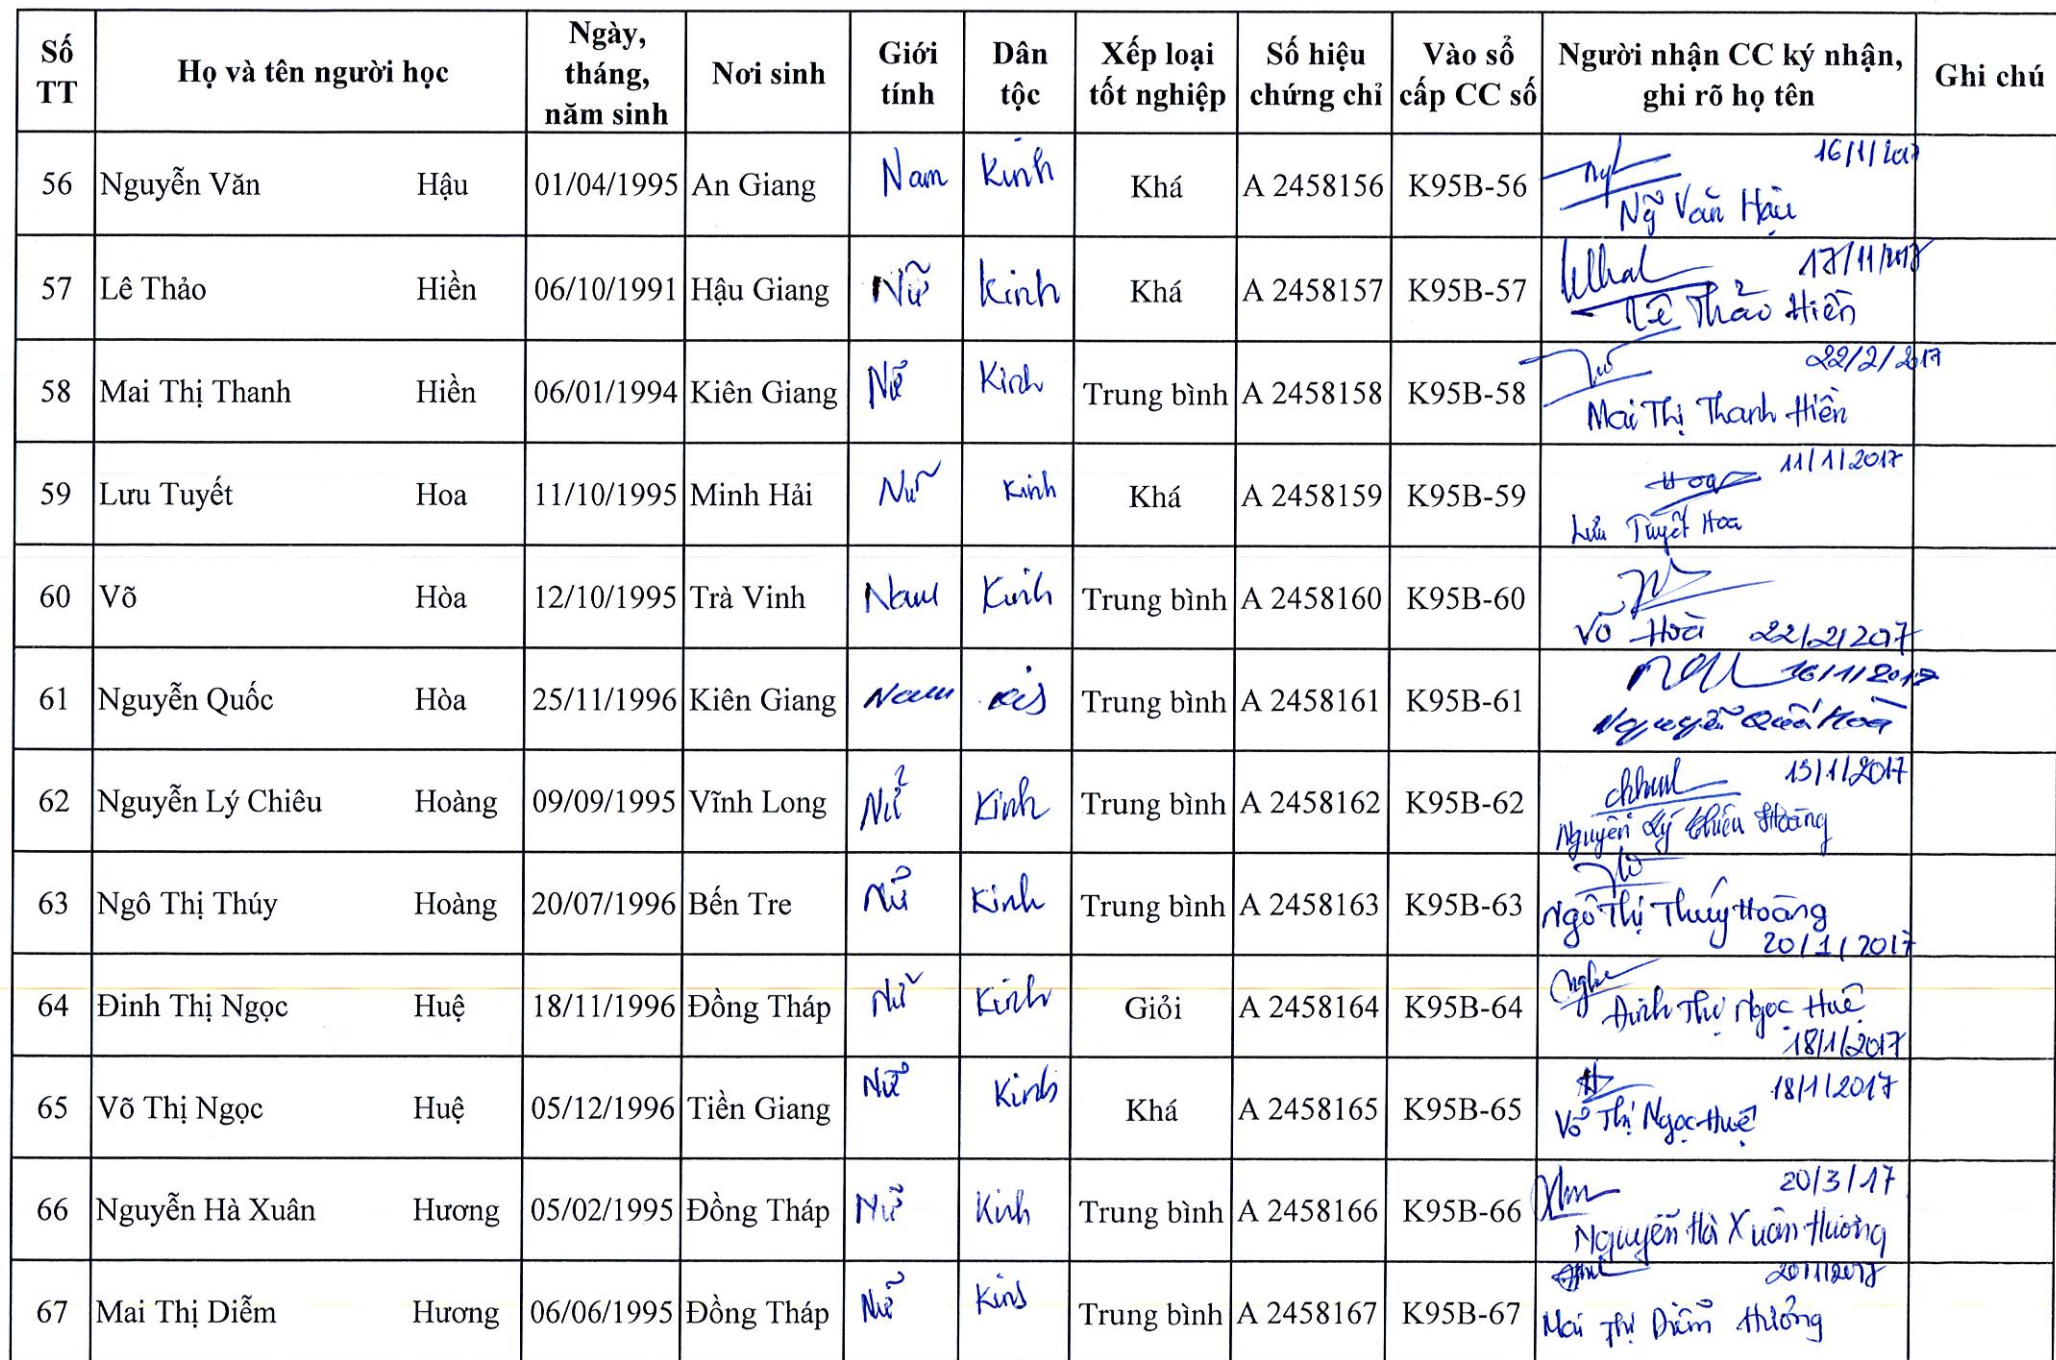 Số TT Họ và tên người học Ngày, tháng, năm sinh Nơi sinh Giới tính Dân tộc Xếp loại tốt nghiệp Số hiệu chứng chỉ Vào sổ cấp CC số Người nhận CC ký nhận, ghi rõ họ tên Ghi chú
56 Nguyễn Văn Hậu 01/04/1995 An Giang Nam Kinh Khá A 2458156 K95B-56 16/1/2017
Ng̃ Văn Hậu
57 Lê Thảo Hiền 06/10/1991 Hậu Giang Nữ Kinh Khá A 2458157 K95B-57 17/11/2017
Lê Thảo Hiền
58 Mai Thị Thanh Hiền 06/01/1994 Kiên Giang Nữ Kinh Trung bình A 2458158 K95B-58 22/2/2017
Mai Thị Thanh Hiền
59 Lưu Tuyết Hoa 11/10/1995 Minh Hải Nữ Kinh Khá A 2458159 K95B-59 11/1/2017
Hoa
Lưu Tuyết Hoa
60 Võ Hòa 12/10/1995 Trà Vinh Nam Kinh Trung bình A 2458160 K95B-60
Võ Hoà 22/2/2017
61 Nguyễn Quốc Hòa 25/11/1996 Kiên Giang Nam Trung bình A 2458161 K95B-61 16/1/2017
Nguyễn Quốc Hoà
62 Nguyễn Lý Chiêu Hoàng 09/09/1995 Vĩnh Long Nữ Kinh Trung bình A 2458162 K95B-62 13/1/2017
Nguyễn Lý Chiêu Hoàng
63 Ngô Thị Thúy Hoàng 20/07/1996 Bến Tre Nữ Kinh Trung bình A 2458163 K95B-63
Ngô Thị Thúy Hoàng
20/1/2017
64 Đinh Thị Ngọc Huệ 18/11/1996 Đồng Tháp Nữ Kinh Giỏi A 2458164 K95B-64
Đinh Thị Ngọc Huệ
18/1/2017
65 Võ Thị Ngọc Huệ 05/12/1996 Tiền Giang Nữ Kinh Khá A 2458165 K95B-65 18/1/2017
Võ Thị Ngọc Huệ
66 Nguyễn Hà Xuân Hương 05/02/1995 Đồng Tháp Nữ Kinh Trung bình A 2458166 K95B-66 20/3/17
Nguyễn Hà Xuân Hương
67 Mai Thị Diễm Hương 06/06/1995 Đồng Tháp Nữ Kinh Trung bình A 2458167 K95B-67 20/1/2017
Mai Thị Diễm Hương